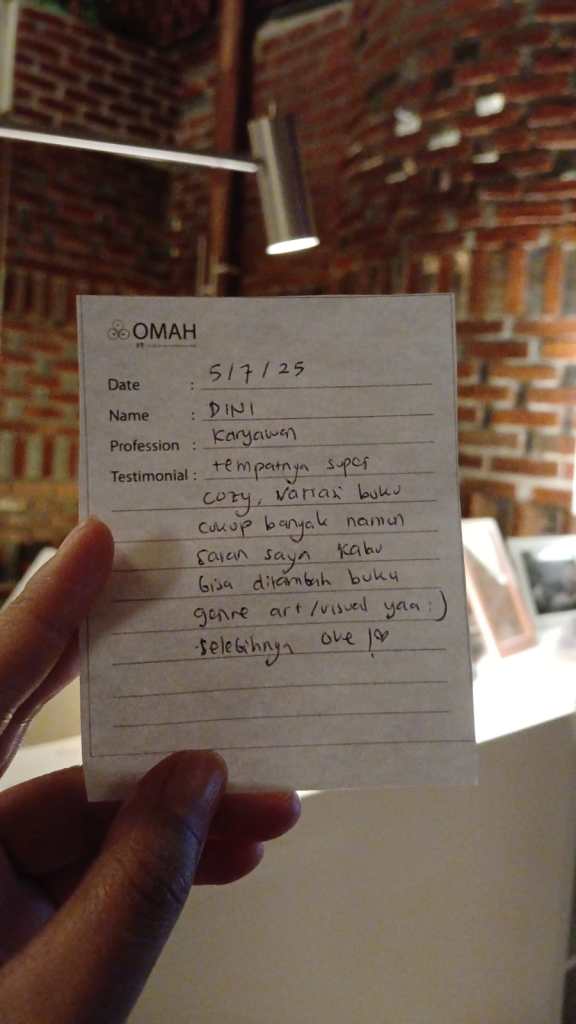 OMAH
Date : 5/7/25
Name : DINI
Profession : Karyawan
Testimonial : tempatnya super
cozy, variasi buku
cukup banyak namun
saran saya kalau
bisa ditambah buku
genre art/visual yaa :)
selebihnya oke !♡